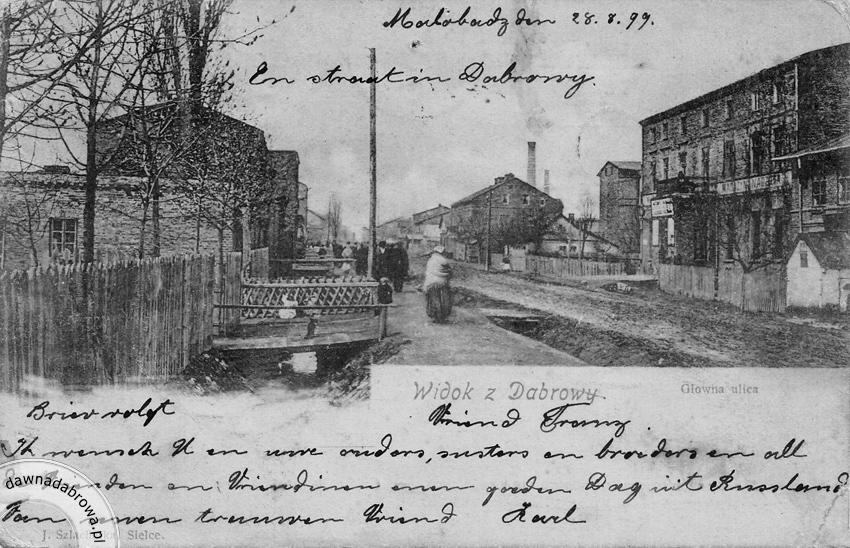 Malobadz den 28.8.99.
En straat in Dabrowy.
Widok z Dabrowy.
Głowna ulica
Briev volgt
Vriend Franz.
Ik wensch U en uwe ouders, susters en broeders en all
en Vriendinen enen goeden Dag uit Russland
Van uwen trauwen Vriend Karl
J. Szla Sielce.
dawnadabrowa.pl